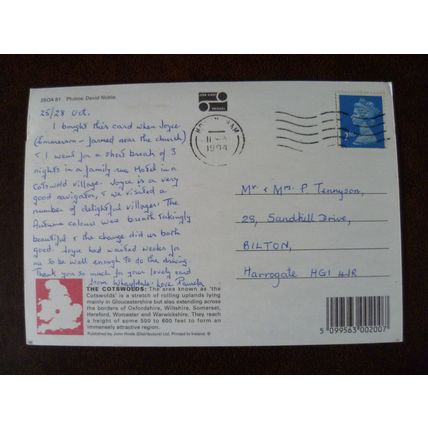 2BOA 61 Photos: David Noble
25/28 Oct.
I bought this card when Joyce
(Emmerson - farmed near the church)
& I went for a short break of 3
nights in a family run Hotel in a
Cotswold village. Joyce is a very
good navigator, & we visited a
number of delightful villages. The
Autumn colour was breath takingly
beautiful & the change did us both
good. Joyce had waited weeks for
me to be well enough to do the driving
Thank you so much for your lovely card
from Wharfedale. Love Pamela
THE COTSWOLDS: The area known as 'the
Cotswolds' is a stretch of rolling uplands lying
mainly in Gloucestershire but also extending across
the borders of Oxfordshire, Wiltshire, Somerset,
Hereford, Worcester and Warwickshire. They reach
a height of some 500 to 600 feet to form an
immensely attractive region.
Published by John Hinde (Distributors) Ltd. Printed in Ireland. ®
1994
2ND
Mr & Mrs. P Tennyson,
28, Sandhill Drive,
BILTON,
Harrogate HG1 4JR
5 099563 002007